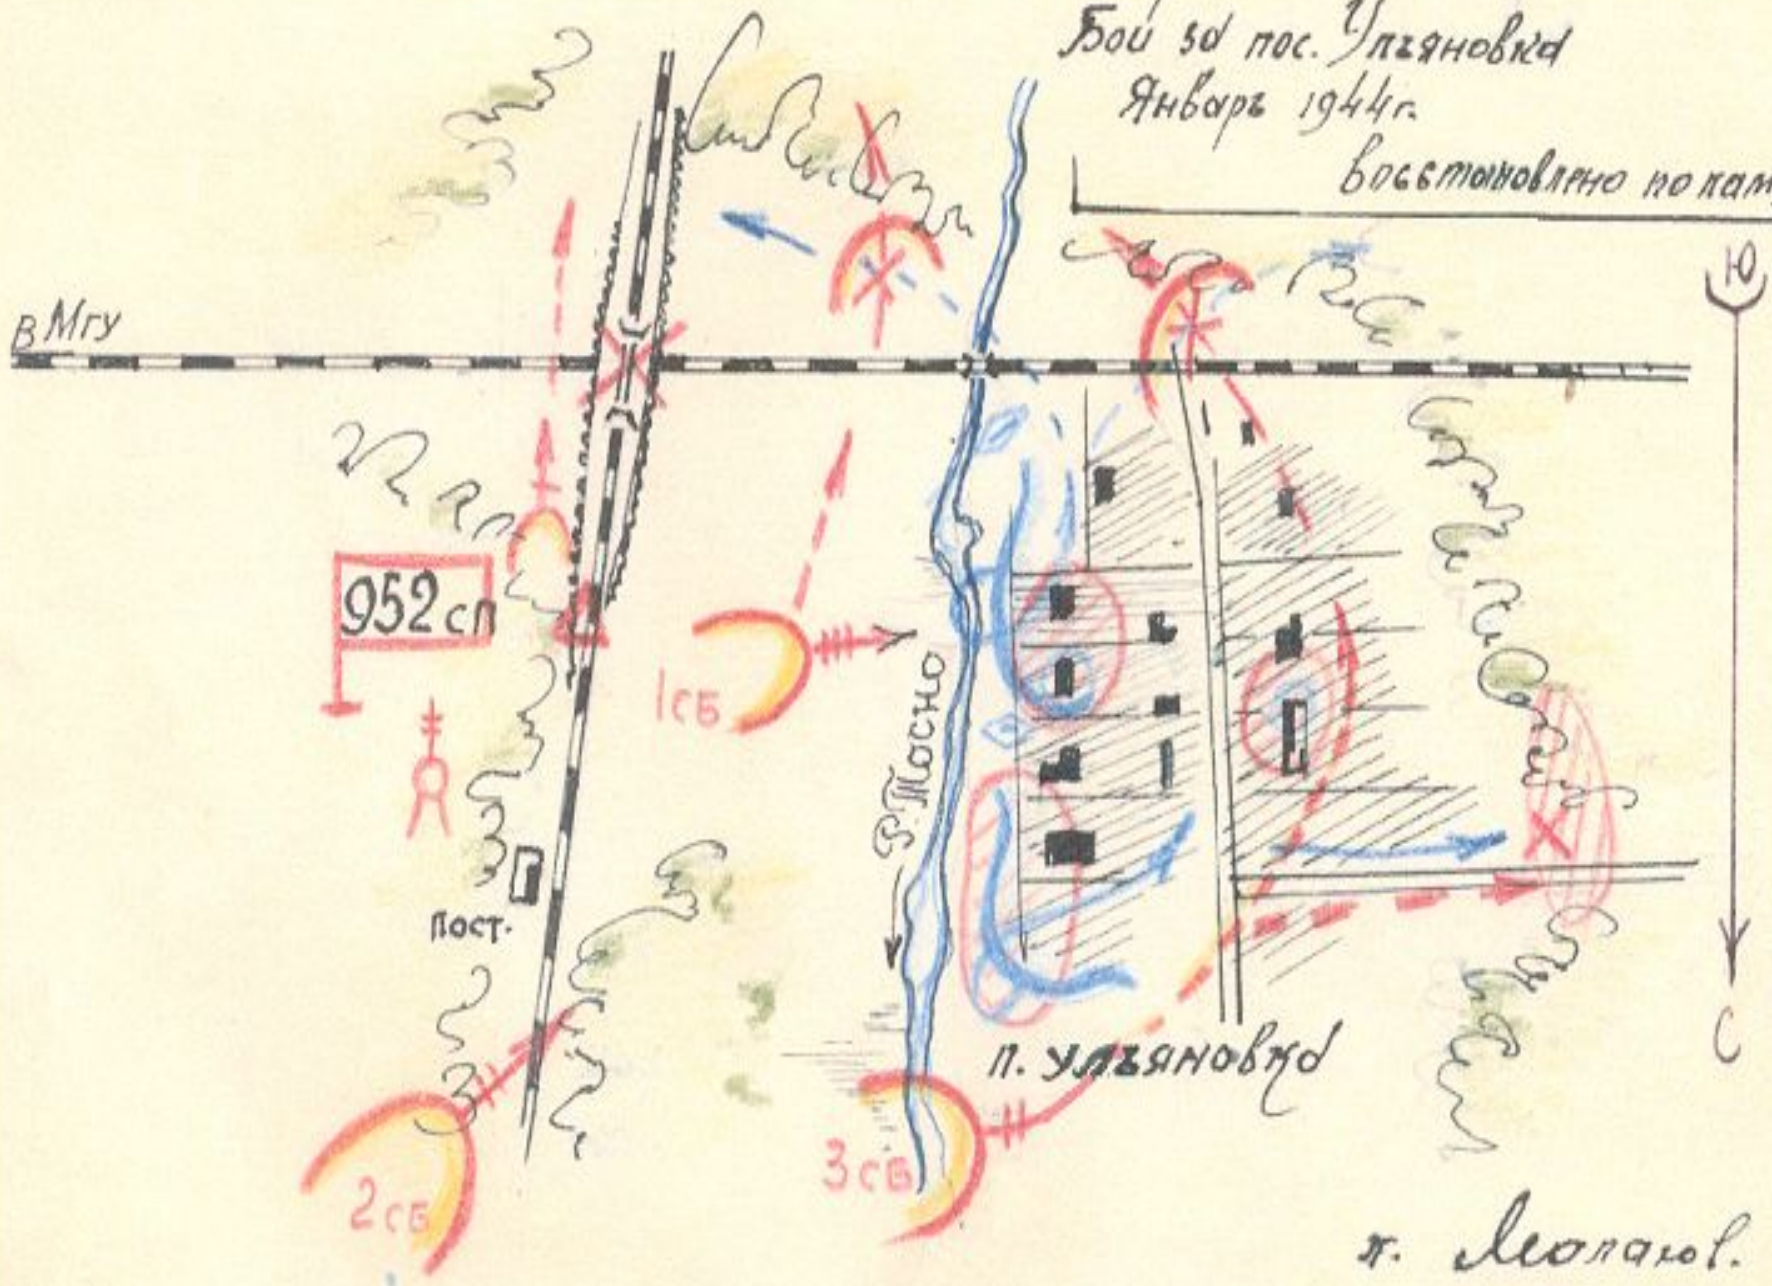 Бои за пос. Ульяновка
Январь 1944г.
восстановлено по пам
Ю
в Мгу
952 сп
1сб
р. Тосно
пост.
п. Ульяновка
С
3сб
2сб
п.